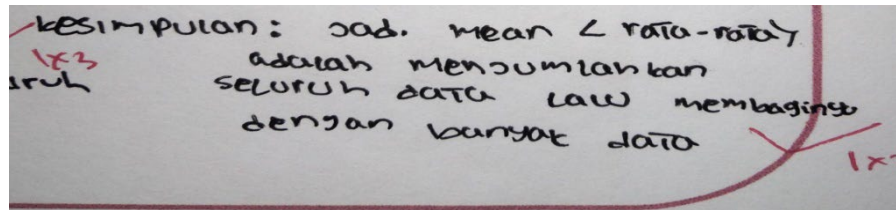 kesimpulan: Jad. mean < rata-rata>
1x3 adalah menjumlahkan
uruh seluruh data lalu membaginya
dengan banyak data
1x